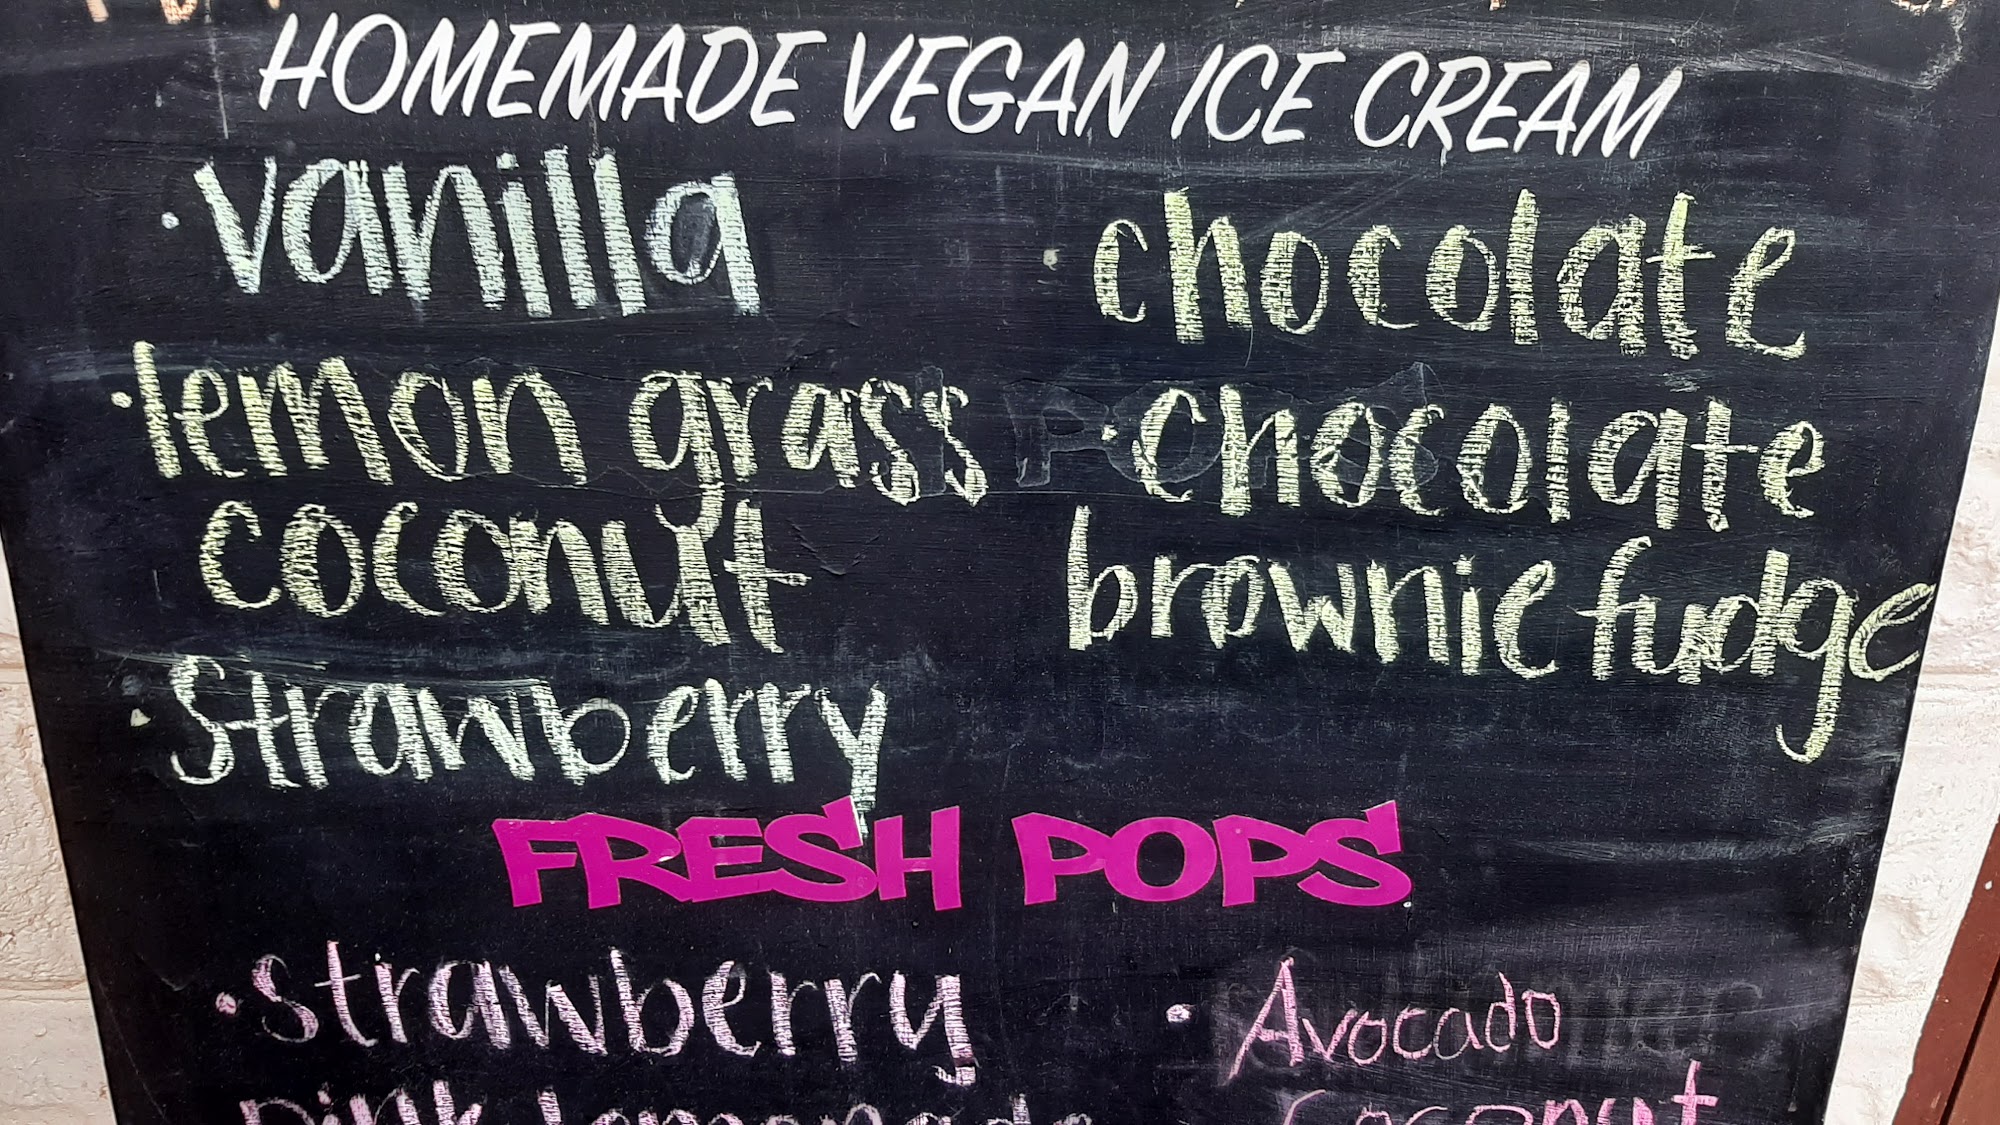 HOMEMADE VEGAN ICE CREAM
· vanilla
· lemon grass
coconut
· strawberry
· chocolate
· chocolate
brownie fudge
FRESH POPS
· strawberry
pink lemonade
· Avocado
Coconut